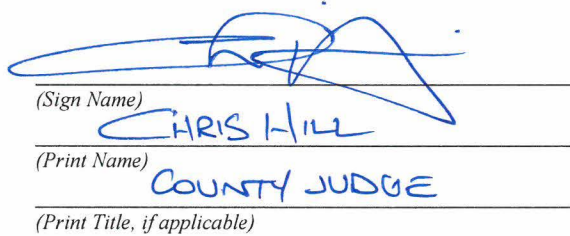 (Sign Name)
CHRIS HILL
(Print Name)
COUNTY JUDGE
(Print Title, if applicable)